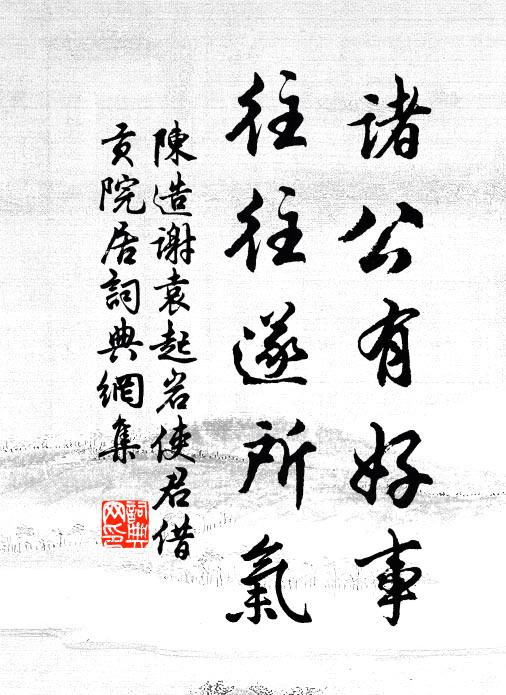 諸公有好事
往往遂所氣
陳造謝袁起岩使君借
貢院居詞典網集
詞典
网印